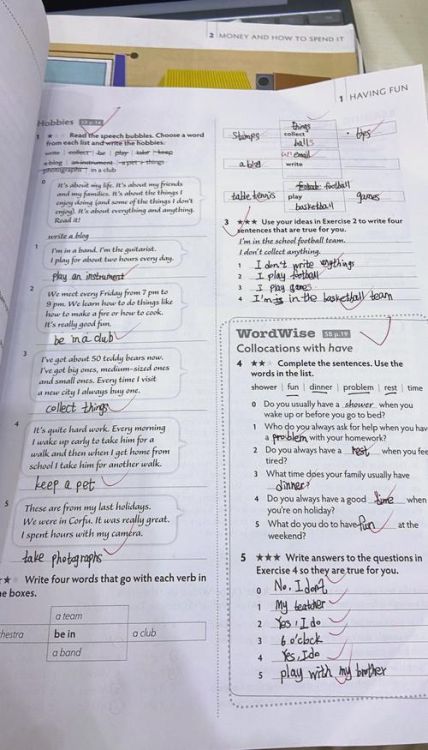 2 MONEY AND HOW TO SPEND IT
1 HAVING FUN
Hobbies
1 ★ Read the speech bubbles. Choose a word
from each list and write the hobbies.
write | collect | be | play | take | keep
a blog | an instrument | a pet | things
photographs | in a club
0 It's about my life. It's about my friends
and my families. It's about the things I
enjoy doing (and some of the things I don't
enjoy). It's about everything and anything.
Read it!
write a blog
1 I'm in a band. I'm the guitarist.
I play for about two hours every day.
play an instrument
2 We meet every Friday from 7 pm to
9 pm. We learn how to do things like
how to make a fire or how to cook.
It's really good fun.
be in a club
3 I've got about 50 teddy bears now.
I've got big ones, medium-sized ones
and small ones. Every time I visit
a new city I always buy one.
collect things
4 It's quite hard work. Every morning
I wake up early to take him for a
walk and then when I get home from
school I take him for another walk.
keep a pet
5 These are from my last holidays.
We were in Corfu. It was really great.
I spent hours with my camera.
take photographs
★ Write four words that go with each verb in
he boxes.
a team
hestra be in a club
a band
things
stamps collect
balls
email
a blog write
football
table tennis play games
basketball
3 ★★★ Use your ideas in Exercise 2 to write four
sentences that are true for you.
I'm in the school football team.
I don't collect anything.
1 I don't write anythings
2 I play football
3 I play games
4 I'm in the basketball team
WordWise SB p.19
Collocations with have
4 ★★ Complete the sentences. Use the
words in the list.
shower | fun | dinner | problem | rest | time
0 Do you usually have a shower when you
wake up or before you go to bed?
1 Who do you always ask for help when you hav
a problem with your homework?
2 Do you always have a rest when you fee
tired?
3 What time does your family usually have
dinner?
4 Do you always have a good time when
you're on holiday?
5 What do you do to have fun at the
weekend?
5 ★★★ Write answers to the questions in
Exercise 4 so they are true for you.
0 No, I don't
1 My teatcher
2 Yes, I do
3 6 o'clock
4 Yes, I do
5 play with my brother